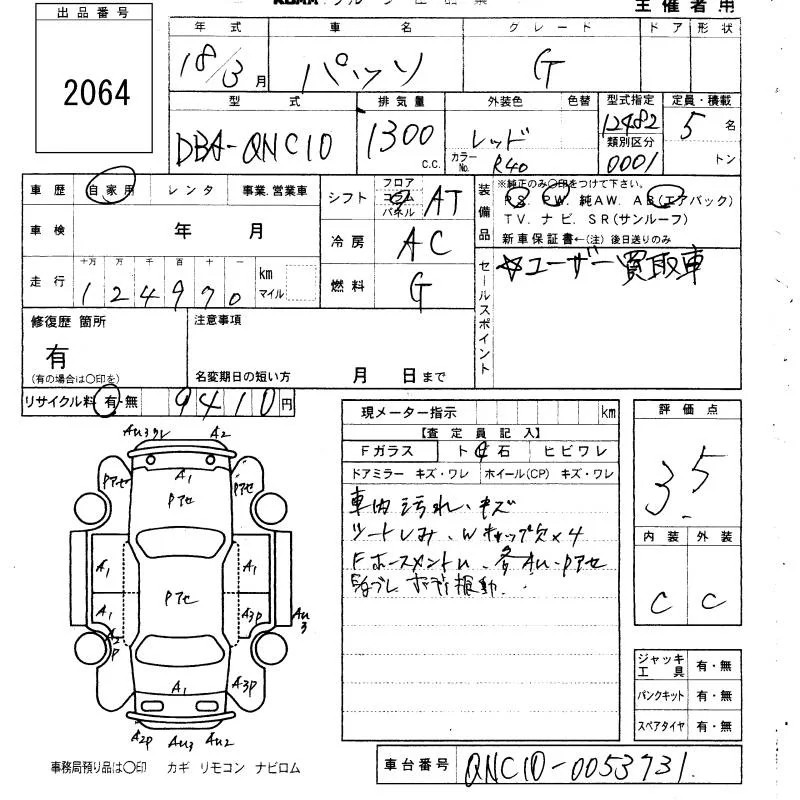 主催者用
出品番号
2064
年式 車名 グレード ドア 形状
18/3月 パッソ G
型式 排気量 外装色 色替 型式指定 定員・積載
DBA-QNC10 1300 C.C. レッド カラーNo. R40 12482 5 名
類別区分
0001 トン
車歴 自家用 レンタ 事業.営業車
車検 年 月
十万 万 千 百 十 一
走行 1 2 4 9 7 0 km マイル
シフト フロア コラム パネル AT
冷房 AC
燃料 G
装備品 ※純正のみ○印をつけて下さい。
PS PW 純AW. AB(エアバック)
TV. ナビ. SR(サンルーフ)
新車保証書←(注) 後日送りのみ
セールスポイント
☆ユーザー買取車
修復歴 箇所 注意事項
有
(有の場合は○印を) 名変期日の短い方 月 日まで
リサイクル料 有・無 9410円
現メーター指示 km
【査定員記入】
Fガラス ト 石 ヒビワレ
ドアミラー キズ・ワレ ホイール(CP) キズ・ワレ
車内汚れ、キズ
シートしみ、Wキャップ欠×4
各AU、Pアセ
ボディ振動
評価点
3.5
内装 外装
C C
ジャッキ工具 有・無
パンクキット 有・無
スペアタイヤ 有・無
AU3 A2
A1
Pアセ Pアセ Pアセ
A1 A1
Pアセ
A1 A3P AU3
A2P
A1 A3P
A2P AU3 AU2
事務局預り品は○印 カギ リモコン ナビロム
車台番号 QNC10-0053731